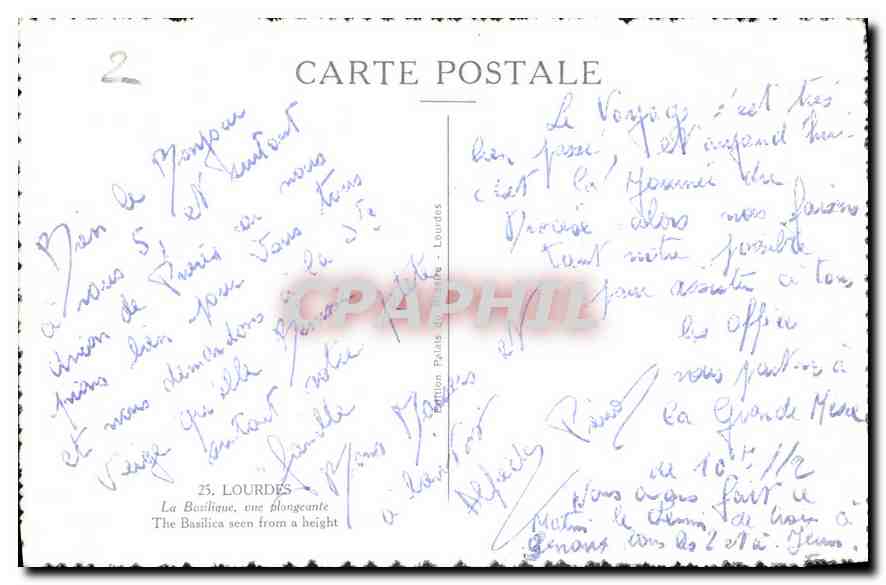 2
CARTE POSTALE
Bien le Bonjour
à vous 5, et surtout
union de Prières car nous
prions bien pour vous tous
et nous demandons à la Ste
Vierge qu'elle
surtout notre petite
famille
Bons Baisers et
à bientôt
Alfred
25. LOURDES
La Basilique, vue plongeante
The Basilica seen from a height
Edition Palais du Rosaire - Lourdes
CPAPHIL
Le Voyage s'est très
bien passé, et aujourd'hui
c'est la Journée du
alors nous faisons
tout notre possible
pour assister à tous
les offices
nous partons à
la Grande Messe
de 10H 1/2
Nous avons fait ce
Matin le chemin de croix à
Genoux tous les 2 et à Jeun.